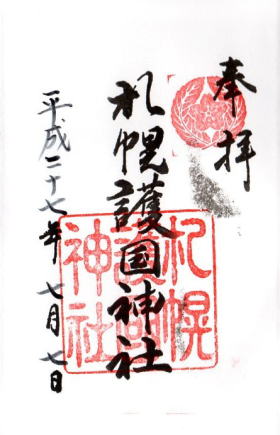 奉拝
札幌護国神社
札幌
護国
神社
平成二十七年七月七日